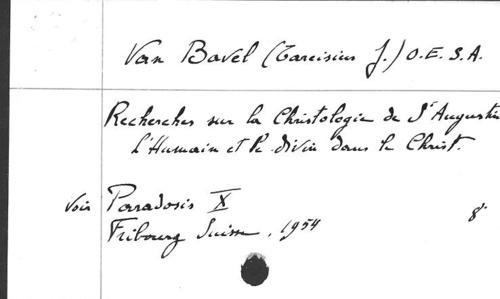 Van Bavel (Tarcisius J.) O.E.S.A.
Recherches sur la Christologie de St Augustin
L'Humain et le divin dans le Christ.
voir Paradosis X
Fribourg Suisse, 1954 8°